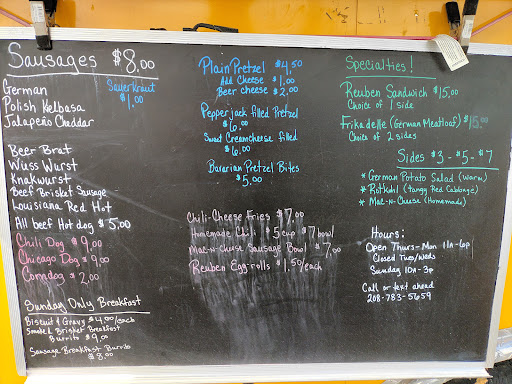 Sausages $8.00
German
Polish Kelbasa
Jalapeño Cheddar
Sauerkraut
$1.00
Beer Brat
Wüss Wurst
Knakwurst
Beef Brisket Sausage
Louisiana Red Hot
All beef Hot dog $5.00
Chili Dog $9.00
Chicago Dog $9.00
Corndog $2.00
Sunday Only Breakfast
Biscuit & Gravy $4.00/each
Smoked Brisket Breakfast
Burrito $9.00
Sausage Breakfast Burrito
$8.00
Plain Pretzel $4.50
Add Cheese $1.00
Beer cheese $2.00
Pepperjack filled Pretzel
$6.00
Sweet Creamcheese filled
$6.00
Bavarian Pretzel Bites
$5.00
Chili-Cheese Fries $7.00
Homemade Chili $5 cup $7 bowl
Mac-n-Chese Sausage Bowl $7.00
Reuben Eggrolls $1.50/each
Specialties!
Reuben Sandwich $15.00
Choice of 1 side
Frikadelle (German Meatloaf) $15.00
Choice of 2 sides
Sides $3 - $5 - $7
* German Potato Salad (Warm)
* Rotkohl (Tangy Red Cabbage)
* Mac-n-Cheese (Homemade)
Hours:
Open Thurs-Mon 11A-6p
Closed Tues/Weds
Sunday 10A-3p
Call or text ahead
208-783-5659